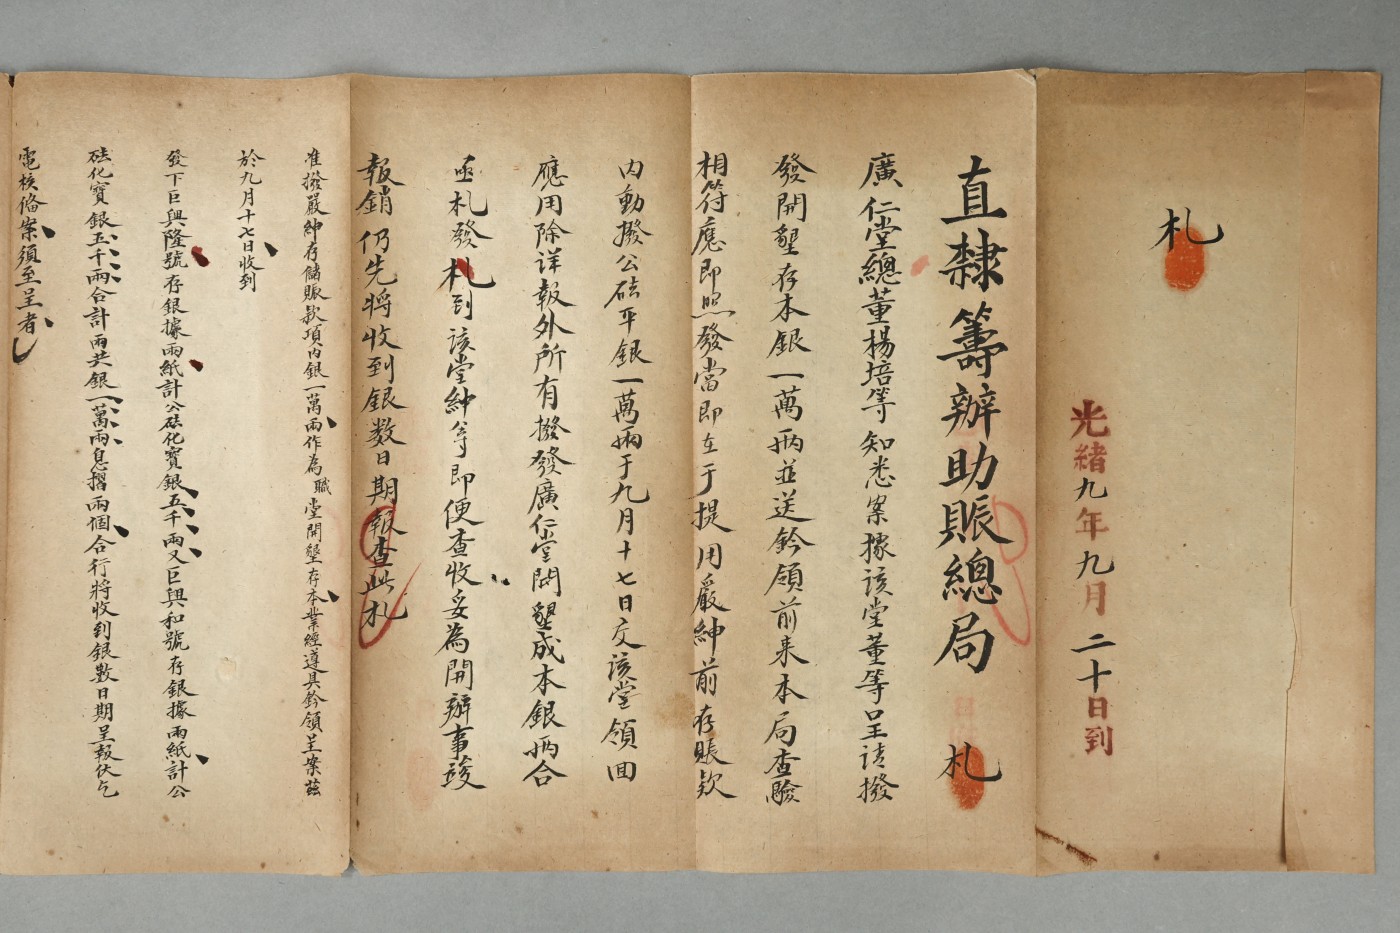 札
光緒九年九月二十日到
直隸籌辦助賑總局 札
廣仁堂總董楊培等知悉案據該堂董等呈請撥
發開墾存本銀一萬両並送鈐領前来本局查驗
相符應即照發當即在于提用嚴紳前存賑欵
內動撥公砝平銀一萬両于九月十七日交該堂領囬
應用除详報外所有撥發廣仁堂開墾成本銀両合
亟札發札到該堂紳等即便查收妥為開辦事竣
報銷仍先将收到銀数日期報查此札
准撥嚴紳存儲賑款項內銀一萬両作為職堂開墾存本業經遵具鈐領呈案茲
於九月十七日收到
發下巨興隆號存銀據兩紙計公砝化寶銀五千兩又巨興和號存銀據兩紙計公
砝化寶銀五千兩合計兩共銀一萬兩息摺兩個合行將收到銀數日期呈報伏乞
電核俻案須至呈者